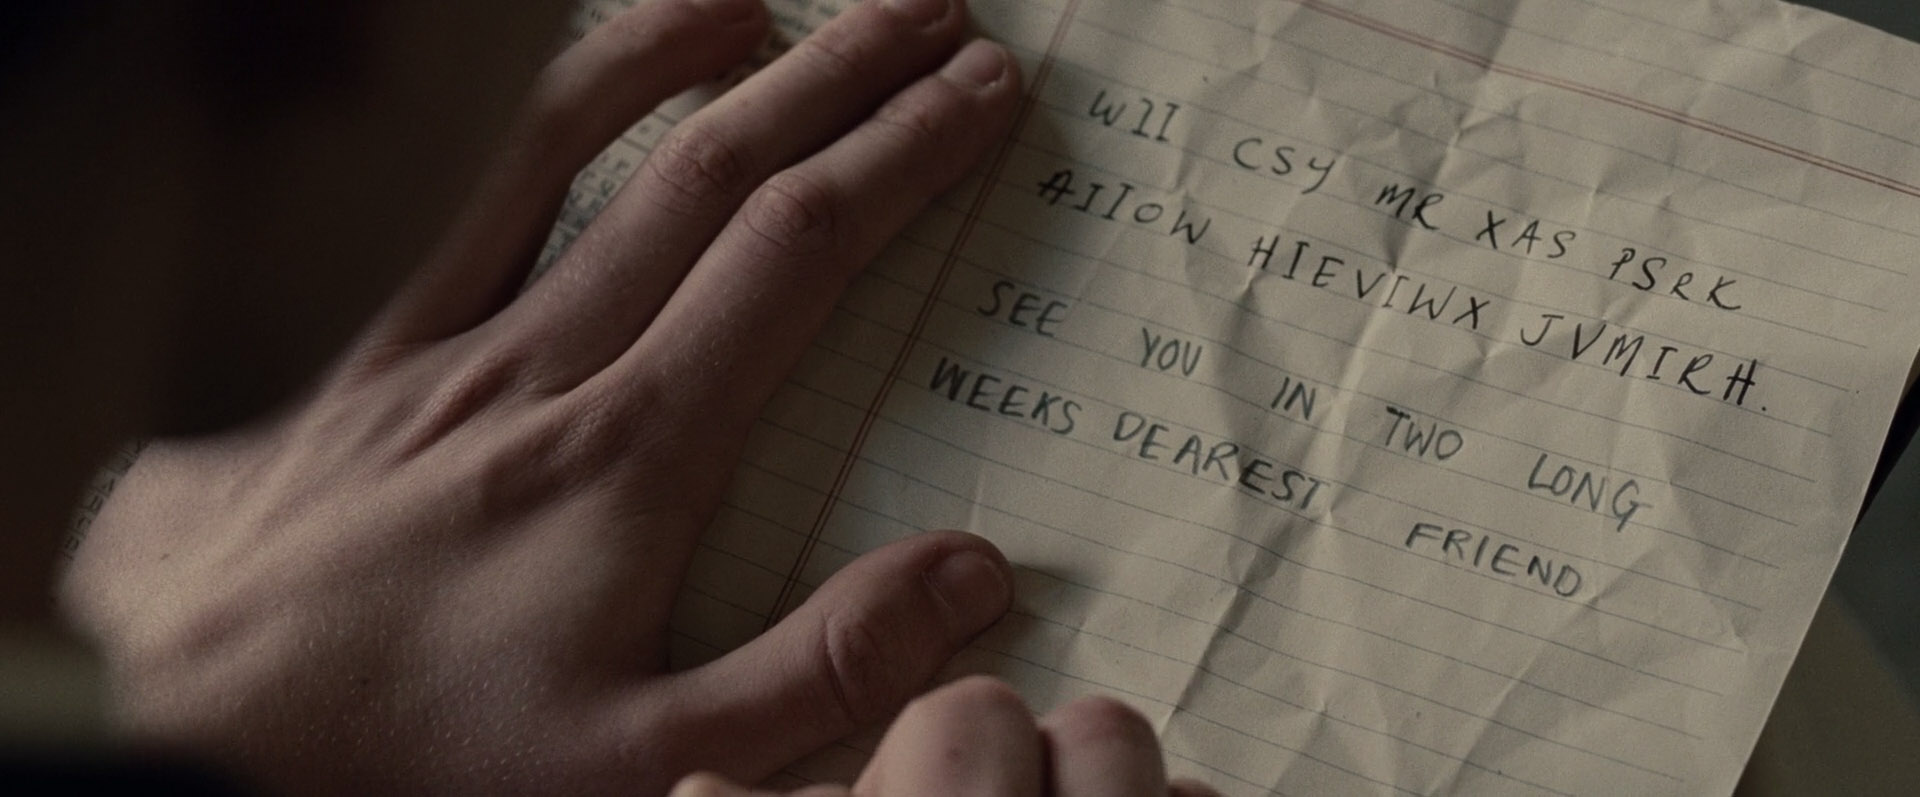 WII CSY MR XAS PSRK
AIIOW HIEVIWX JVMIRH.
SEE YOU IN TWO LONG
WEEKS DEAREST FRIEND